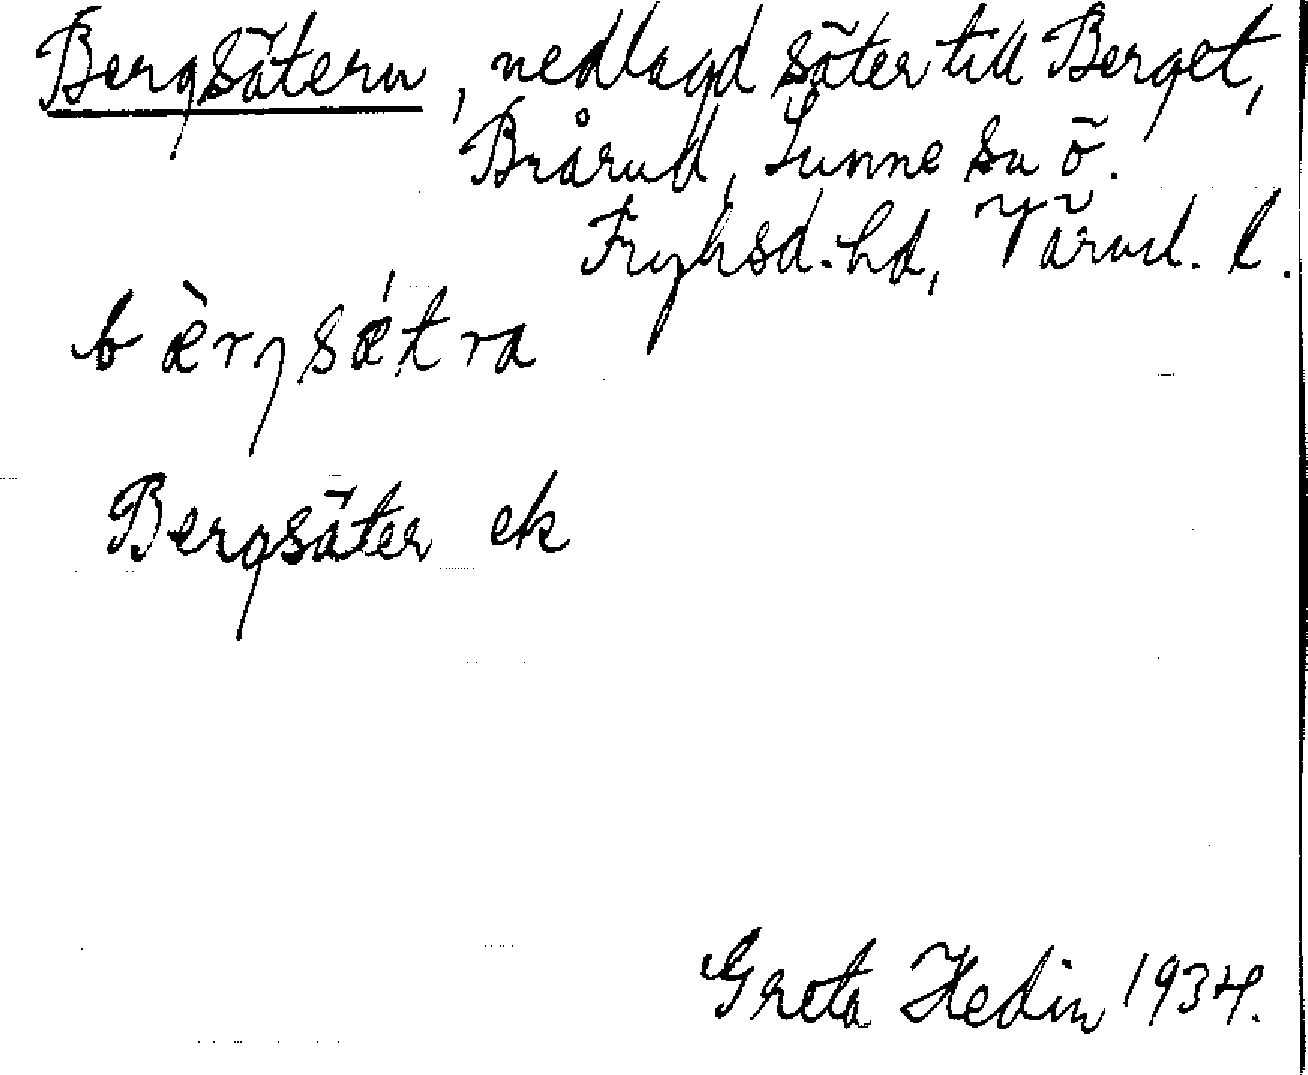 Bergsätern, nedlagd säter till Berget,
Brårud, Sunne sn ö.
Fryksd. hd, Värml. l.
bæ̀rgsǽtra
Bergsäter ek
Greta Hedin 1934.